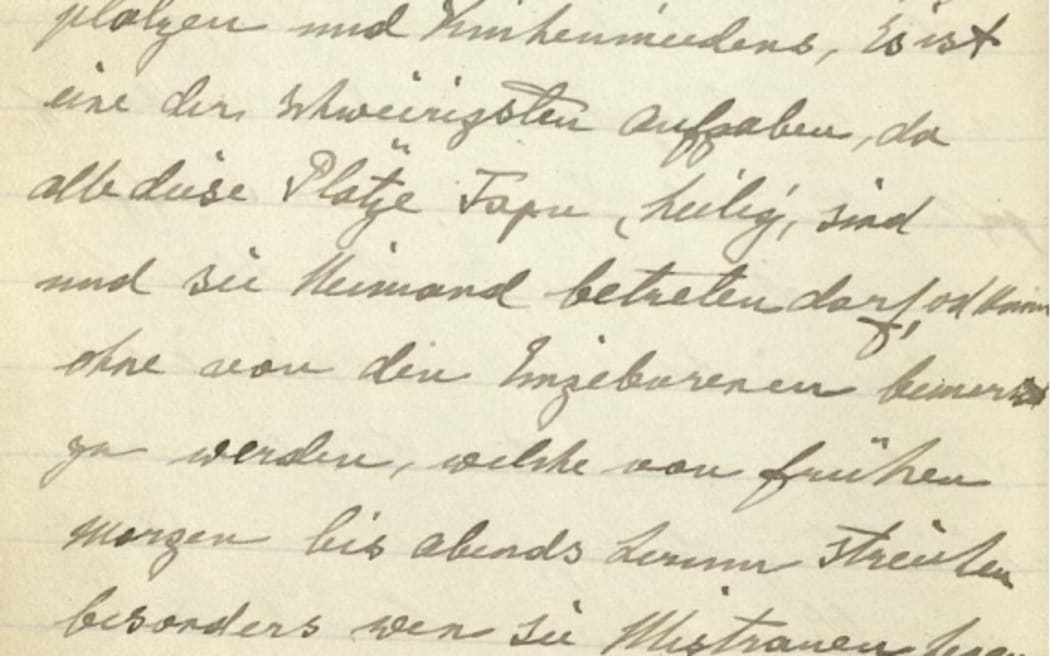 plätzen und Kuhenmeedens, Es ist
eine der schwierigsten Aufgaben, da
alle diese Plätze Tapu (heilig) sind
und sie Niemand betreten darf, od kann
ohne von den Eingeborenen bemerkt
zu werden, welche von frühen
Morgen bis abends herum streichen
besonders wen sie Mistrauen